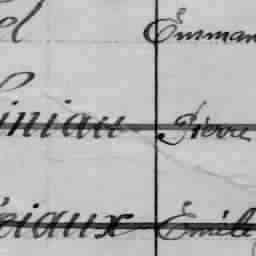 d Emman
iniau Pierre
eiaux Émile